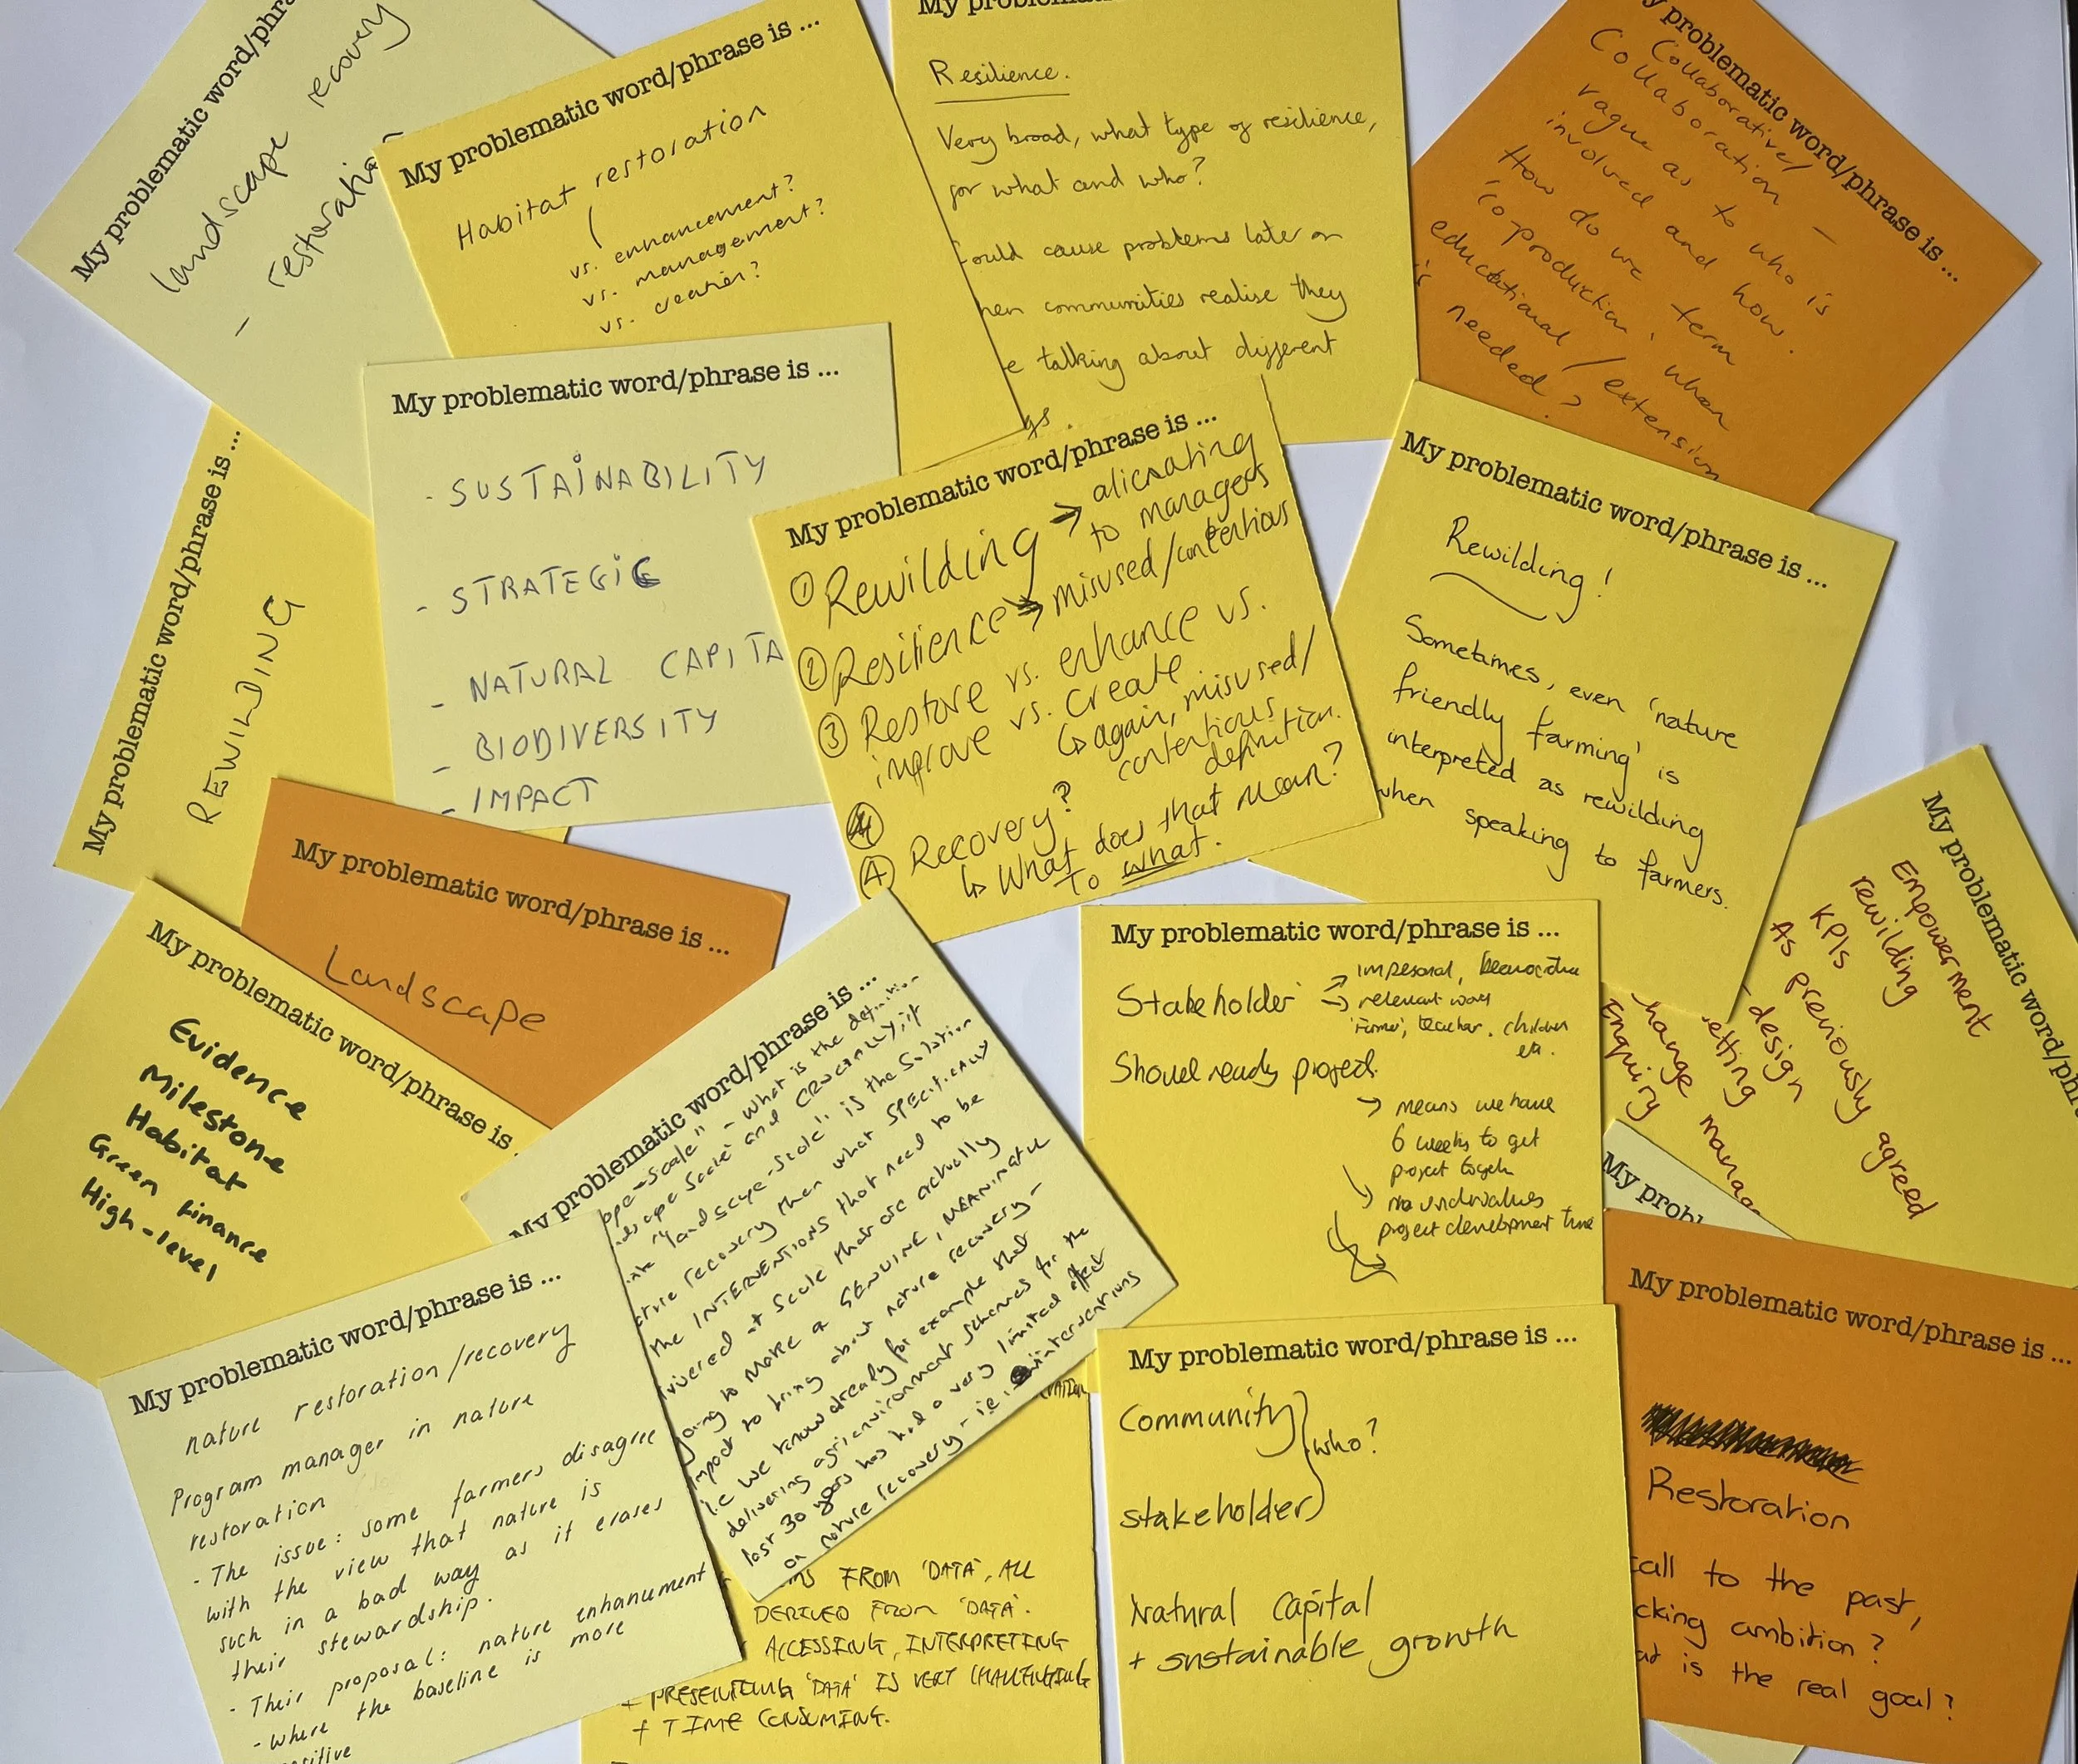 My problematic word/phra
landscape recovery
- restoration
My problematic word/phrase is ...
Habitat restoration
vs. enhancement?
vs. management?
vs. creation?
My problematic
Resilience.
Very broad, what type of resilience,
for what and who?
ould cause problems later on
hen communities realise they
e talking about different
gs.
My problematic word/phrase is ...
Collaborative/
Collaboration -
vague as to who is
involved and how.
How do we term
'co-production' when
educational / extension
is needed?
My problematic word/phrase is ...
REWILDING
My problematic word/phrase is ...
- SUSTAINABILITY
- STRATEGIC
- NATURAL CAPITA
- BIODIVERSITY
- IMPACT
My problematic word/phrase is ...
① Rewilding → alienating
to managers
② Resilience → misused/contentious
③ Restore vs. enhance vs.
improve vs. create
↳ again, misused/
contentious
definition.
④ Recovery?
↳ What does that mean?
To what.
My problematic word/phrase is ...
Rewilding!
Sometimes, even 'nature
friendly farming' is
interpreted as rewilding
when speaking to farmers.
My problematic word/phr
Empowerment
rewilding
KPIs
As previously agreed
design
etting
hange manag
Enquiry
My problematic word/phrase is ...
Landscape
My problematic word/phrase is
Evidence
Milestone
Habitat
Green Finance
High-level
My problematic word/phrase is ...
ape-scale" - what is the definition
scape scale and CRUCIALLY; if
"landscape-scale" is the solution
ature recovery then what SPECIFICALLY
the INTERVENTIONS that need to be
livered at scale that are actually
going to make a GENUINE, MEANINGFUL
impact to bring about nature recovery -
i.e we know already for example that
delivering agrienvironment schemes for the
last 30 years has had a very limited effect
on nature recovery - ie. interventions
My problematic word/phrase is ...
Stakeholder → impersonal,
→ relevant ways
'Farmer', teacher, children
etc.
Shovel ready project.
→ means we have
6 weeks to get
project together
→ undervalues
project development time
My prob
My problematic word/phrase is ...
nature restoration/recovery
Program manager in nature
restoration
- The issue: some farmers disagree
with the view that nature is
such in a bad way as it erases
their stewardship.
- Their proposal: nature enhancement
- where the baseline is more
ositive
FROM 'DATA', ALL
DERIVED FROM 'DATA'.
ACCESSING, INTERPRETING
+ PRESENTING 'DATA' IS VERY CHALLENGING
+ TIME CONSUMING.
My problematic word/phrase is ...
Community
who?
stakeholder
Natural Capital
+ sustainable growth
My problematic word/phrase is ...
Restoration
call to the past,
cking ambition?
at is the real goal?